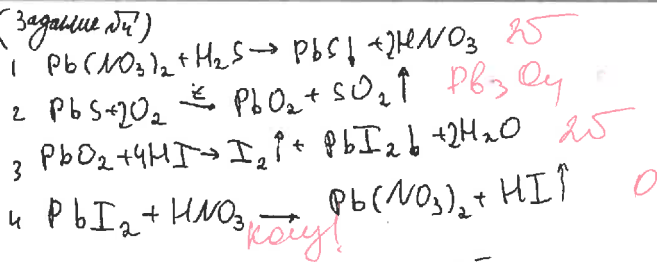 (Задание №4)
1 Pb(NO₃)₂ + H₂S → PbS↓ + 2HNO₃ 2б
2 PbS + 2O₂ t→ PbO₂ + SO₂↑ Pb₃O₄
3 PbO₂ + 4HI → I₂↑ + PbI₂↓ + 2H₂O 2б
4 PbI₂ + HNO₃ → Pb(NO₃)₂ + HI↑ 0
конц!